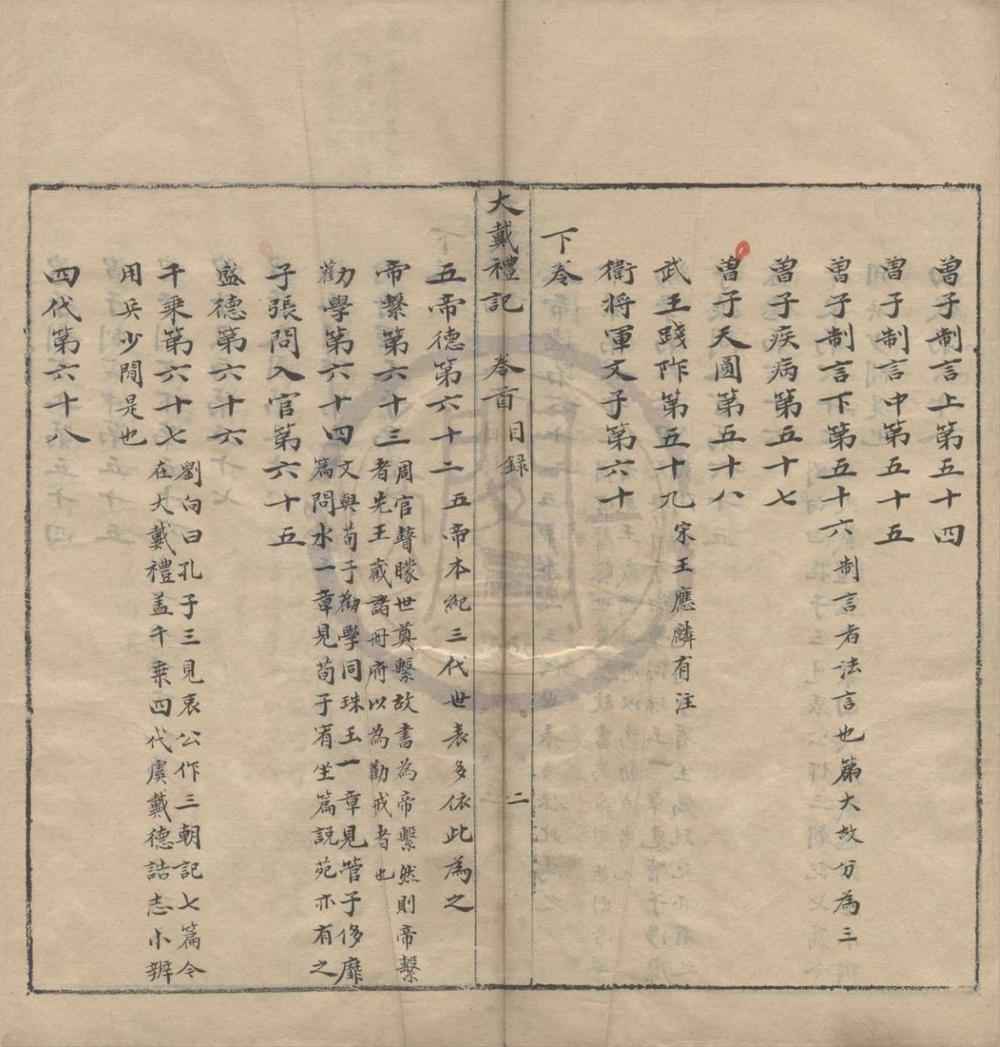 曽子制言上第五十四
曽子制言中第五十五
曽子制言下第五十六 制言者法言也苐大故分為三
曽子疾病第五十七
曽子天圓第五十八
武王踐阼第五十九 宋王應麟有注
衛将軍文子第六十
下卷
大戴禮記 卷首 目録 二
五帝德第六十二 五帝本紀三代世表多依此為之
帝繫第六十三 周官瞽矇世奠繫故書為帝繫然則帝繫
者先王蔵諸册府以為勸戒者也
勸學第六十四 文與荀子勸學同珠玉一章見管子侈靡
篇問水一章見荀子宥坐篇説苑亦有之
子張問入官第六十五
盛德第六十六
千乗第六十七 劉向曰孔子三見哀公作三朝記七篇今
在大戴禮盖千乗四代虞戴德誥志小辨
用兵少間是也
四代第六十八